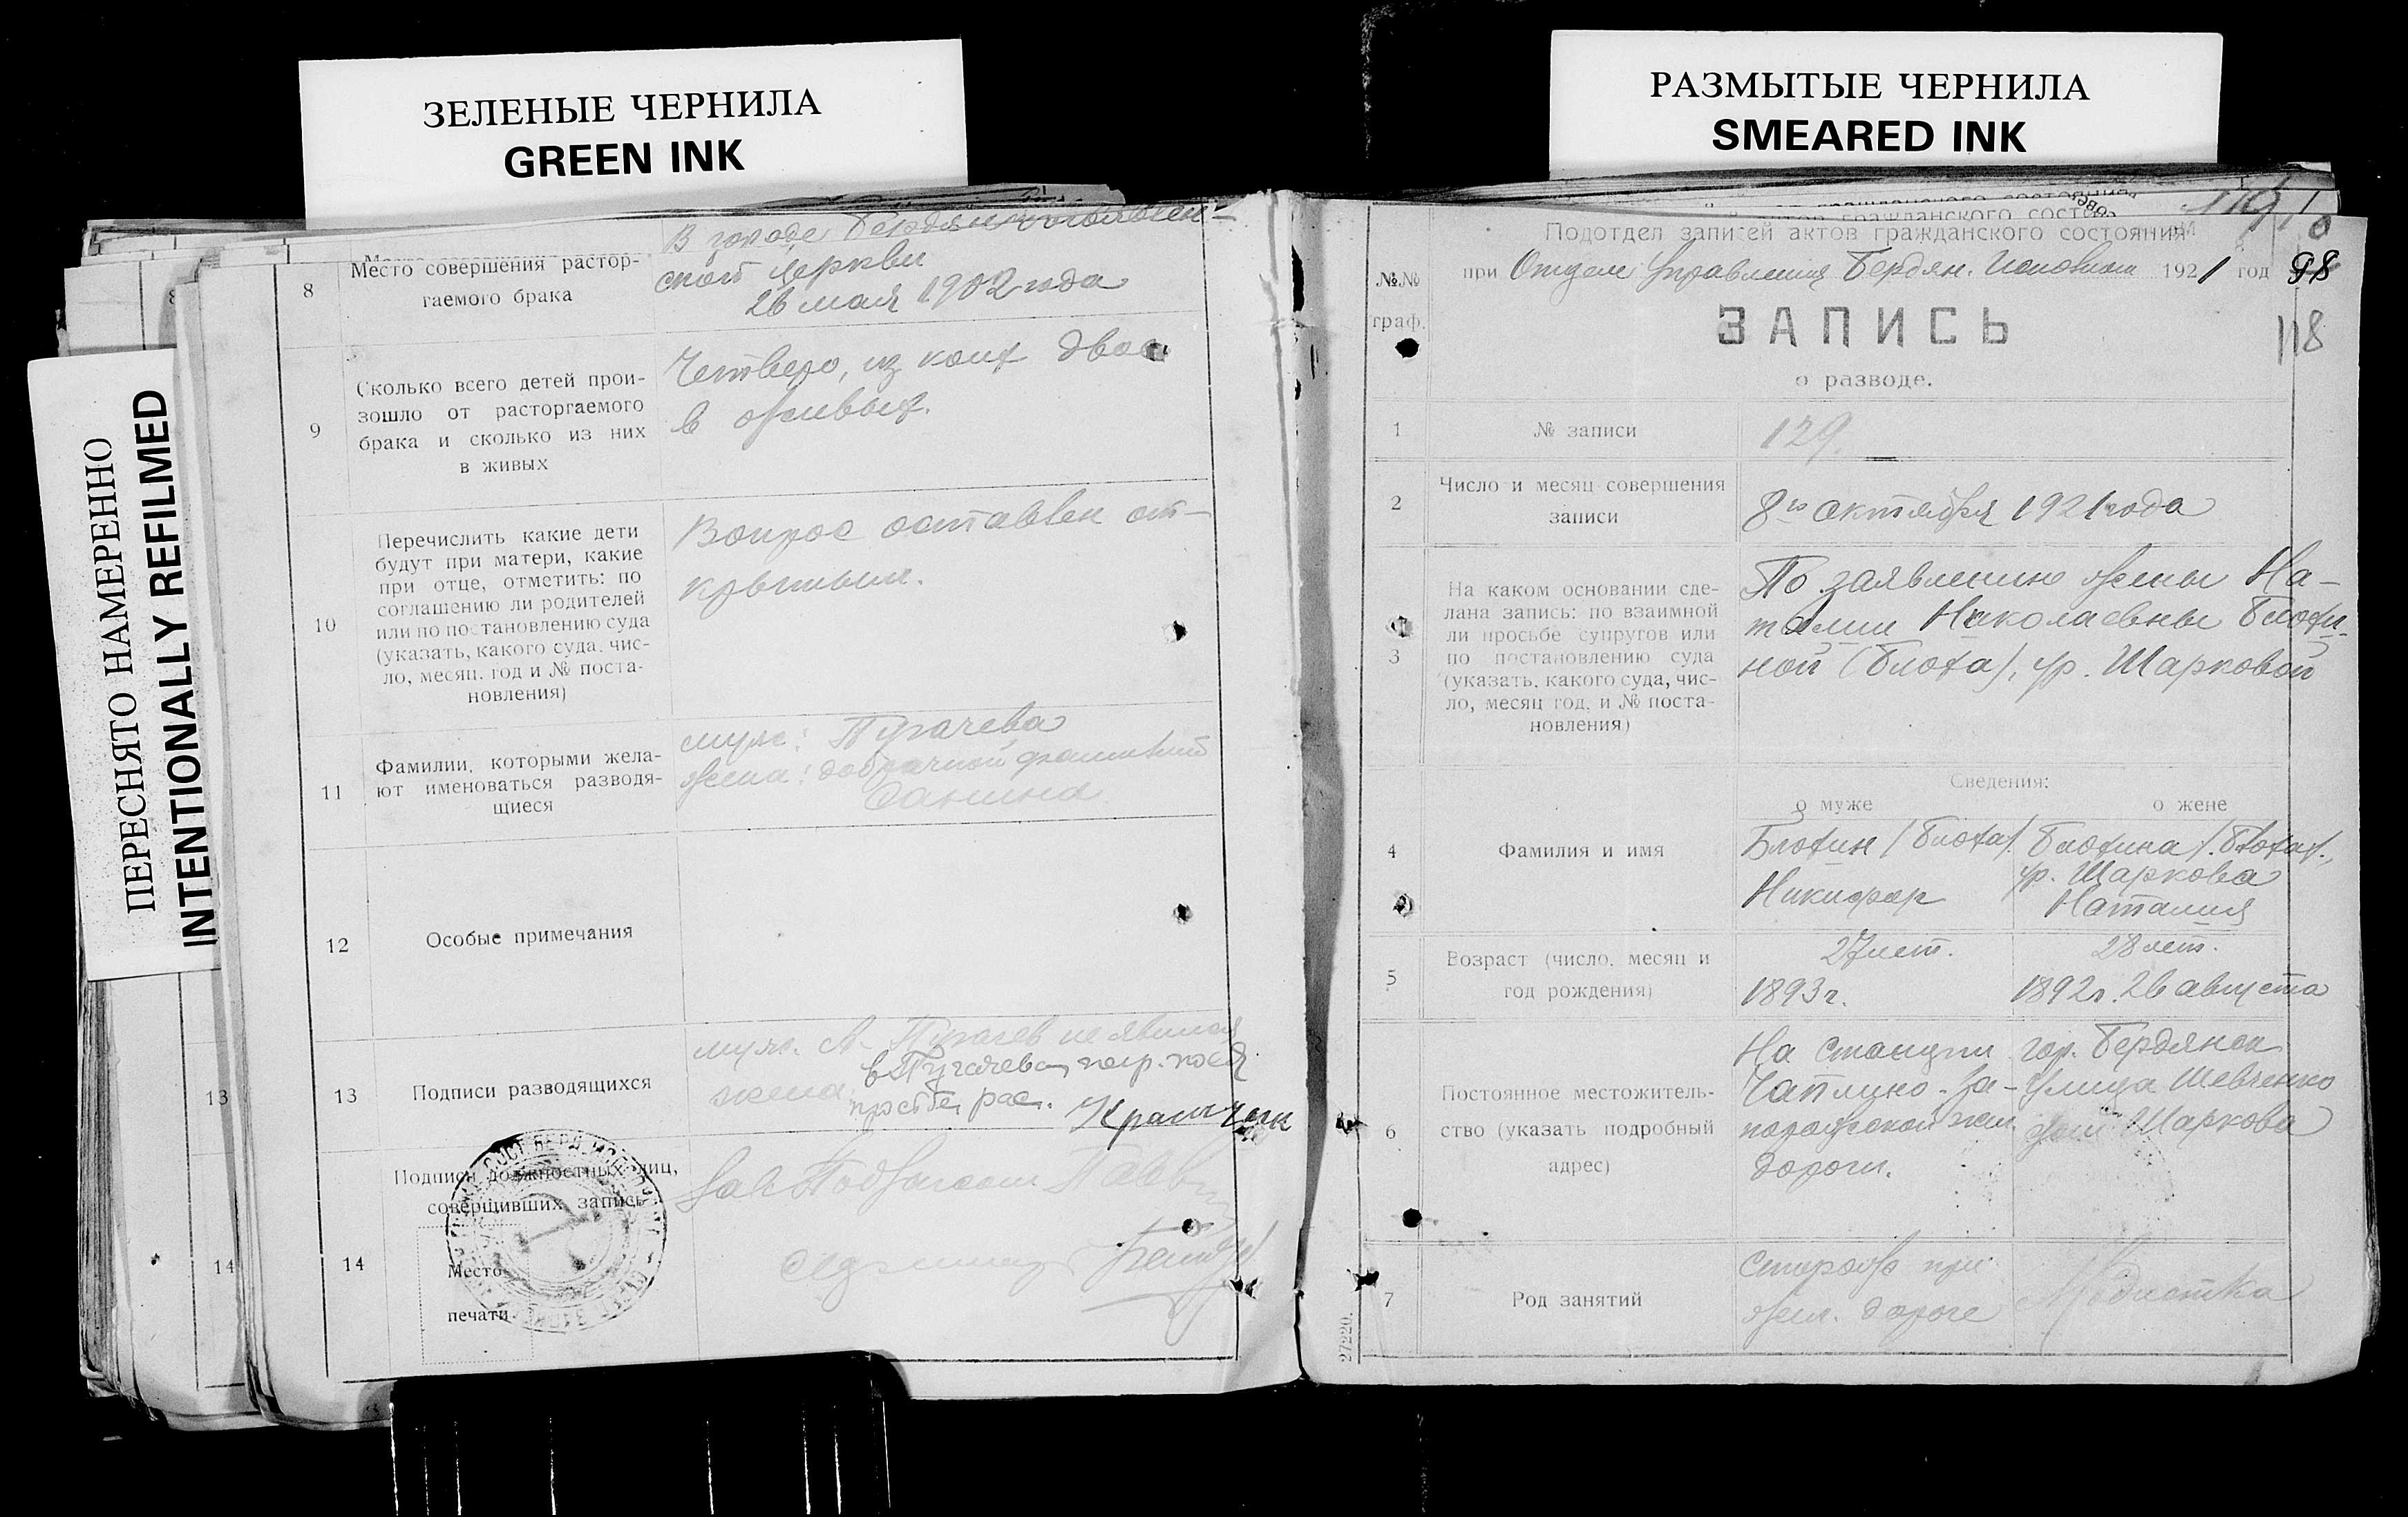 ЗЕЛЕНЫЕ ЧЕРНИЛА
GREEN INK
ПЕРЕСНЯТО НАМЕРЕННО
INTENTIONALLY REFILMED
8
Место совершения растор-
гаемого брака
В городе
ской Церкви
26 мая 1902 года
9
Сколько всего детей прои-
зошло от расторгаемого
брака и сколько из них
в живых
Четверо, из коих двое
в живых.
10
Перечислить какие дети
будут при матери, какие
при отце, отметить: по
соглашению ли родителей
или по постановлению суда
(указать, какого суда, чис-
ло, месяц, год и № поста-
новления)
Вопрос оставлен от-
крытым.
11
Фамилии, которыми жела-
ют именоваться разводя-
щиеся
муж: Пугачева
жена: добрачной фамилией
Санина
12
Особые примечания
13
Подписи разводящихся
муж. А. Пугачев не явился
в Пугачева, негр. по ея
жена.
просьбе рас.
13
14
Подписи должностных лиц,
совершивших запись
Место
печати
Зав Подотделом
14
РАЗМЫТЫЕ ЧЕРНИЛА
SMEARED INK
119
Подотдел записей актов гражданского состояния
при Отделе Управления Бердян. Исполкома 1921 год 98
118
№№
граф.
ЗАПИСЬ
о разводе.
1
№ записи
129.
2
Число и месяц совершения
записи
8го октября 1921 года
3
На каком основании сде-
лана запись: по взаимной
ли просьбе супругов или
по постановлению суда
(указать, какого суда, чис-
ло, месяц год, и № поста-
новления)
По заявлению жены На-
талии Николаевны Блохи-
ной (Блоха), ур. Шарковой
Сведения:
о муже
о жене
4
Фамилия и имя
Блохин (Блоха).
Никифор
Блохина (Блоха),
ур. Шаркова
Наталия
5
Возраст (число, месяц и
год рождения)
27 лет.
1893 г.
28 лет.
1892 г. 26 августа
6
Постоянное местожитель-
ство (указать подробный
адрес)
На станции
Чаплино-За-
порожской жел.
дороги.
гор. Бердянск
улица Шевченко
дом Шаркова
7
Род занятий
Сторож при
жел. дороге
Модистка
27220.